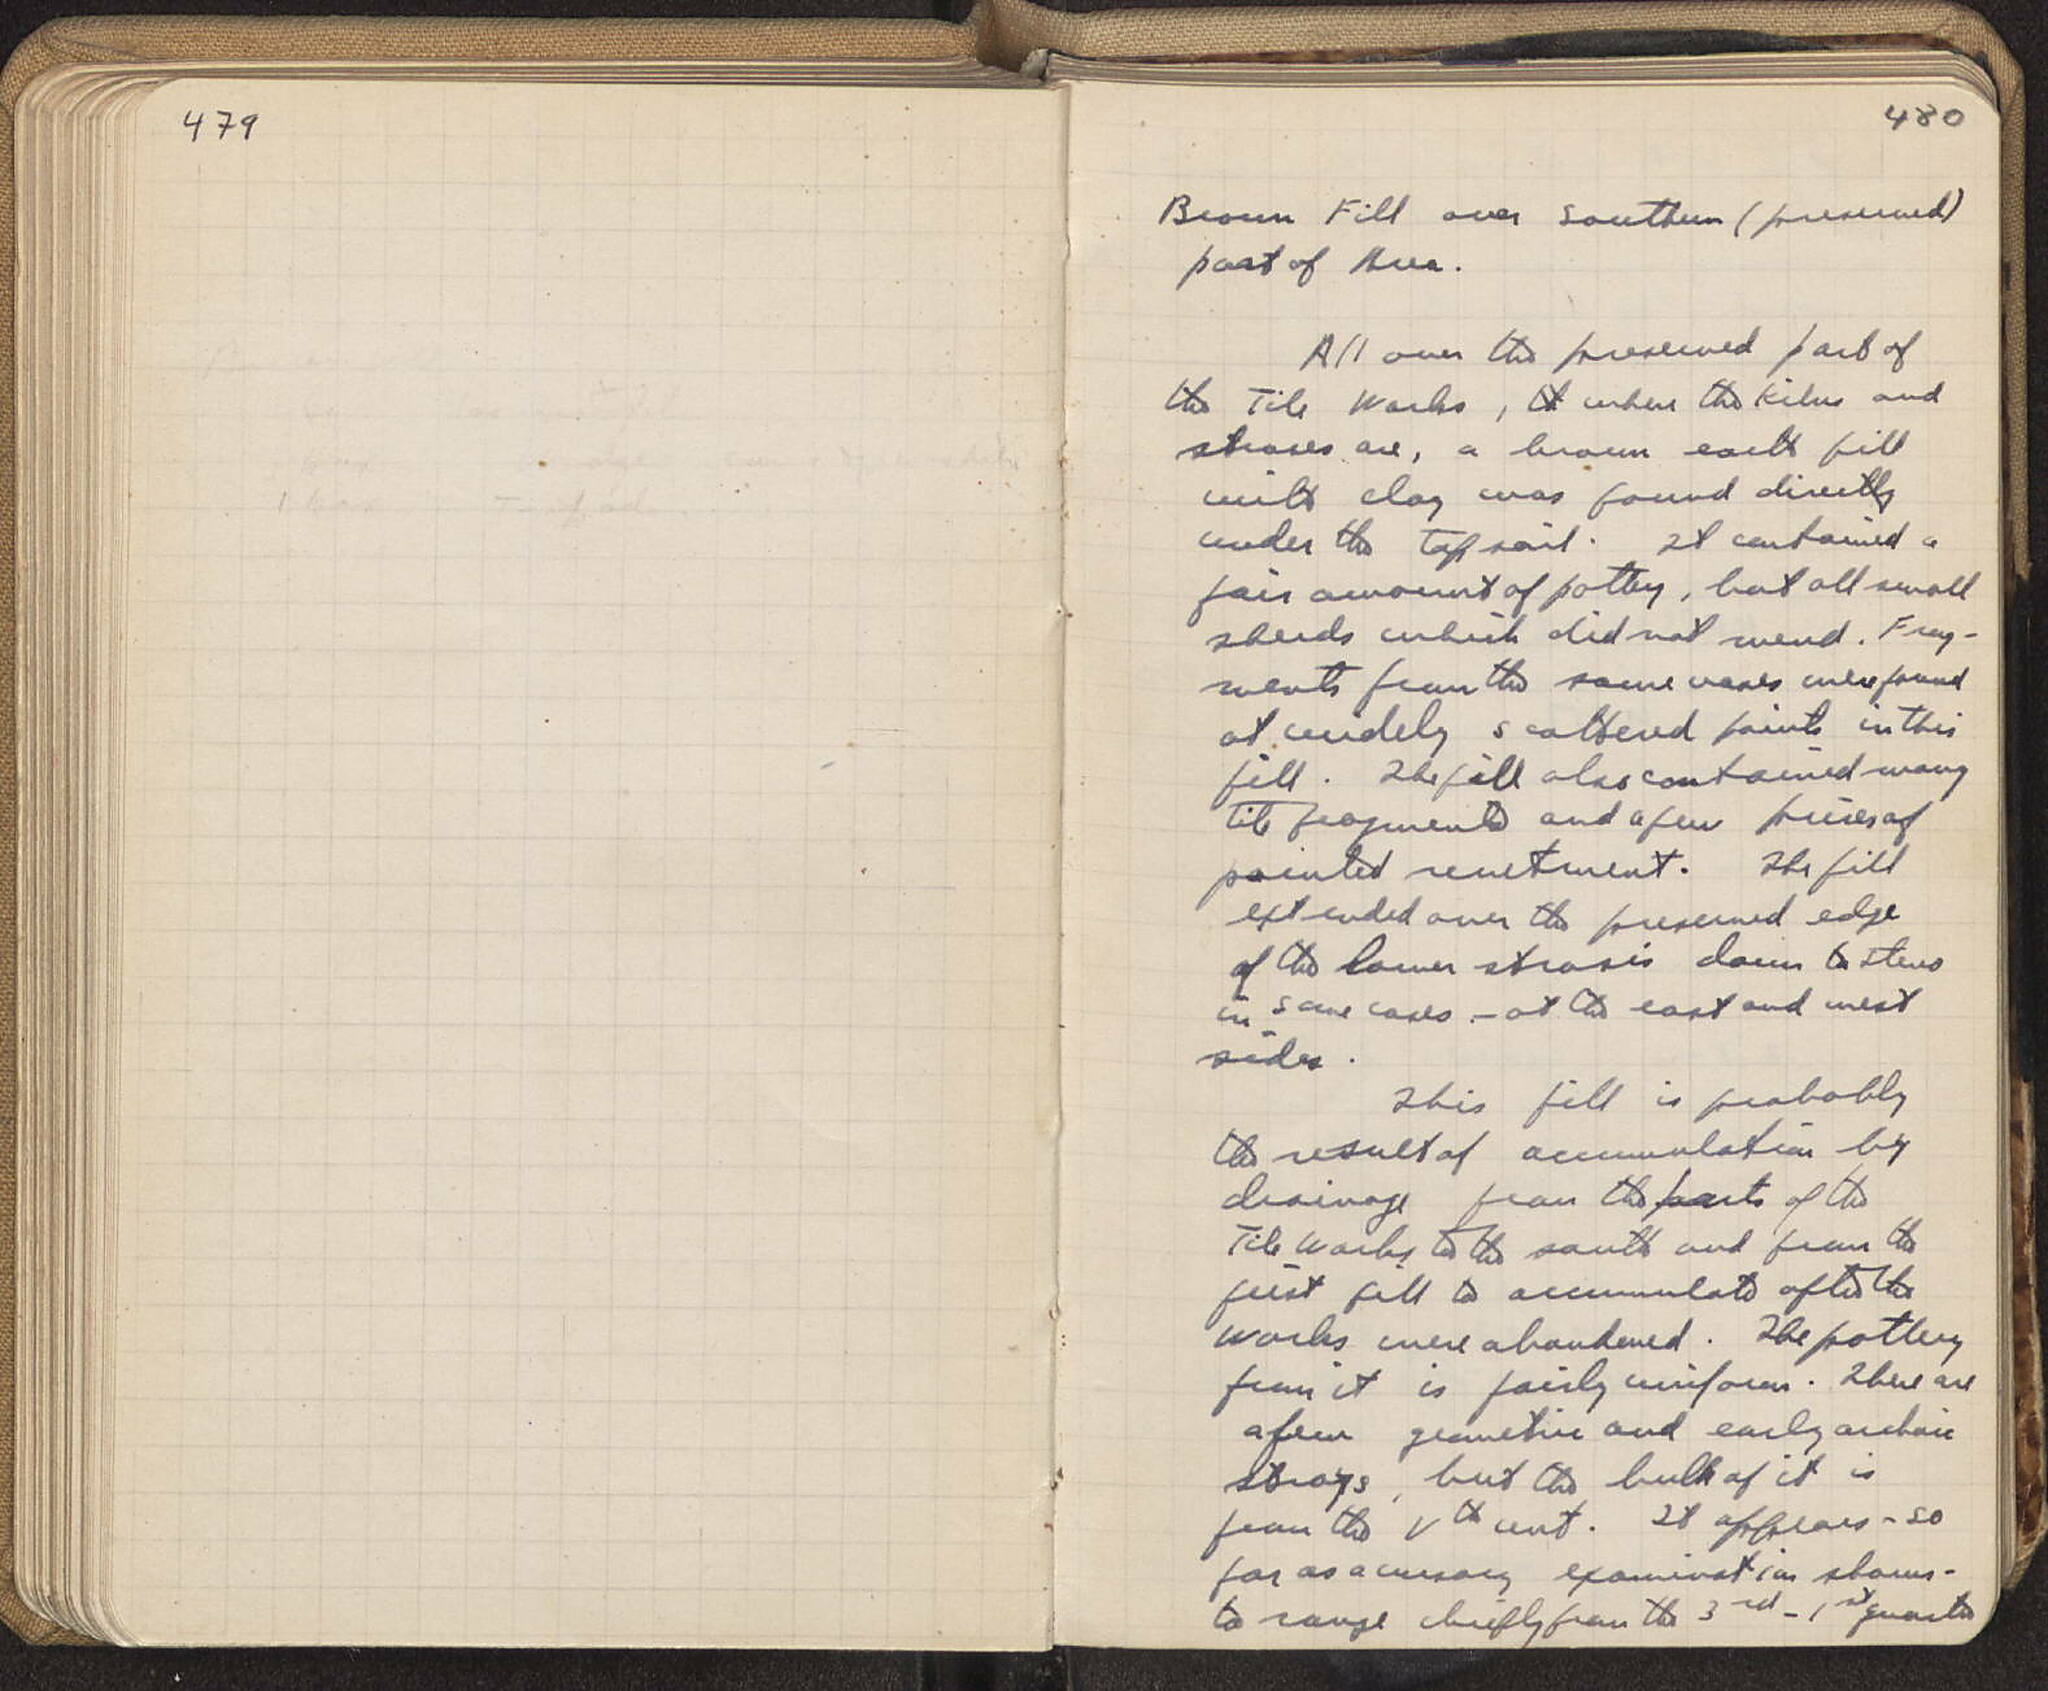 479
480
Brown Fill over Southern (preserved)
part of Area.
All over the preserved part of
the Tile Works, where the Kilns and
stroses are, a brown earth fill
with clay was found directly
under the top soil. It contained a
fair amount of pottery, but all small
sherds which did not mend. Frag-
ments from the same vases were found
at widely scattered points in this
fill. The fill also contained many
tile fragments and a few pieces of
painted revetment. The fill
extended over the preserved edge
of the lower strosis down to stereo
in some cases - at the east and west
sides.
This fill is probably
the result of accumulation by
drainage from the parts of the
Tile Works to the south and from the
first fill to accumulate after the
Works were abandoned. The pottery
from it is fairly uniform. There are
a few geometric and early archaic
strays, but the bulk of it is
from the Vth cent. It appears - so
far as a cursory examination shows -
to range chiefly from the 3rd - 1st quarter